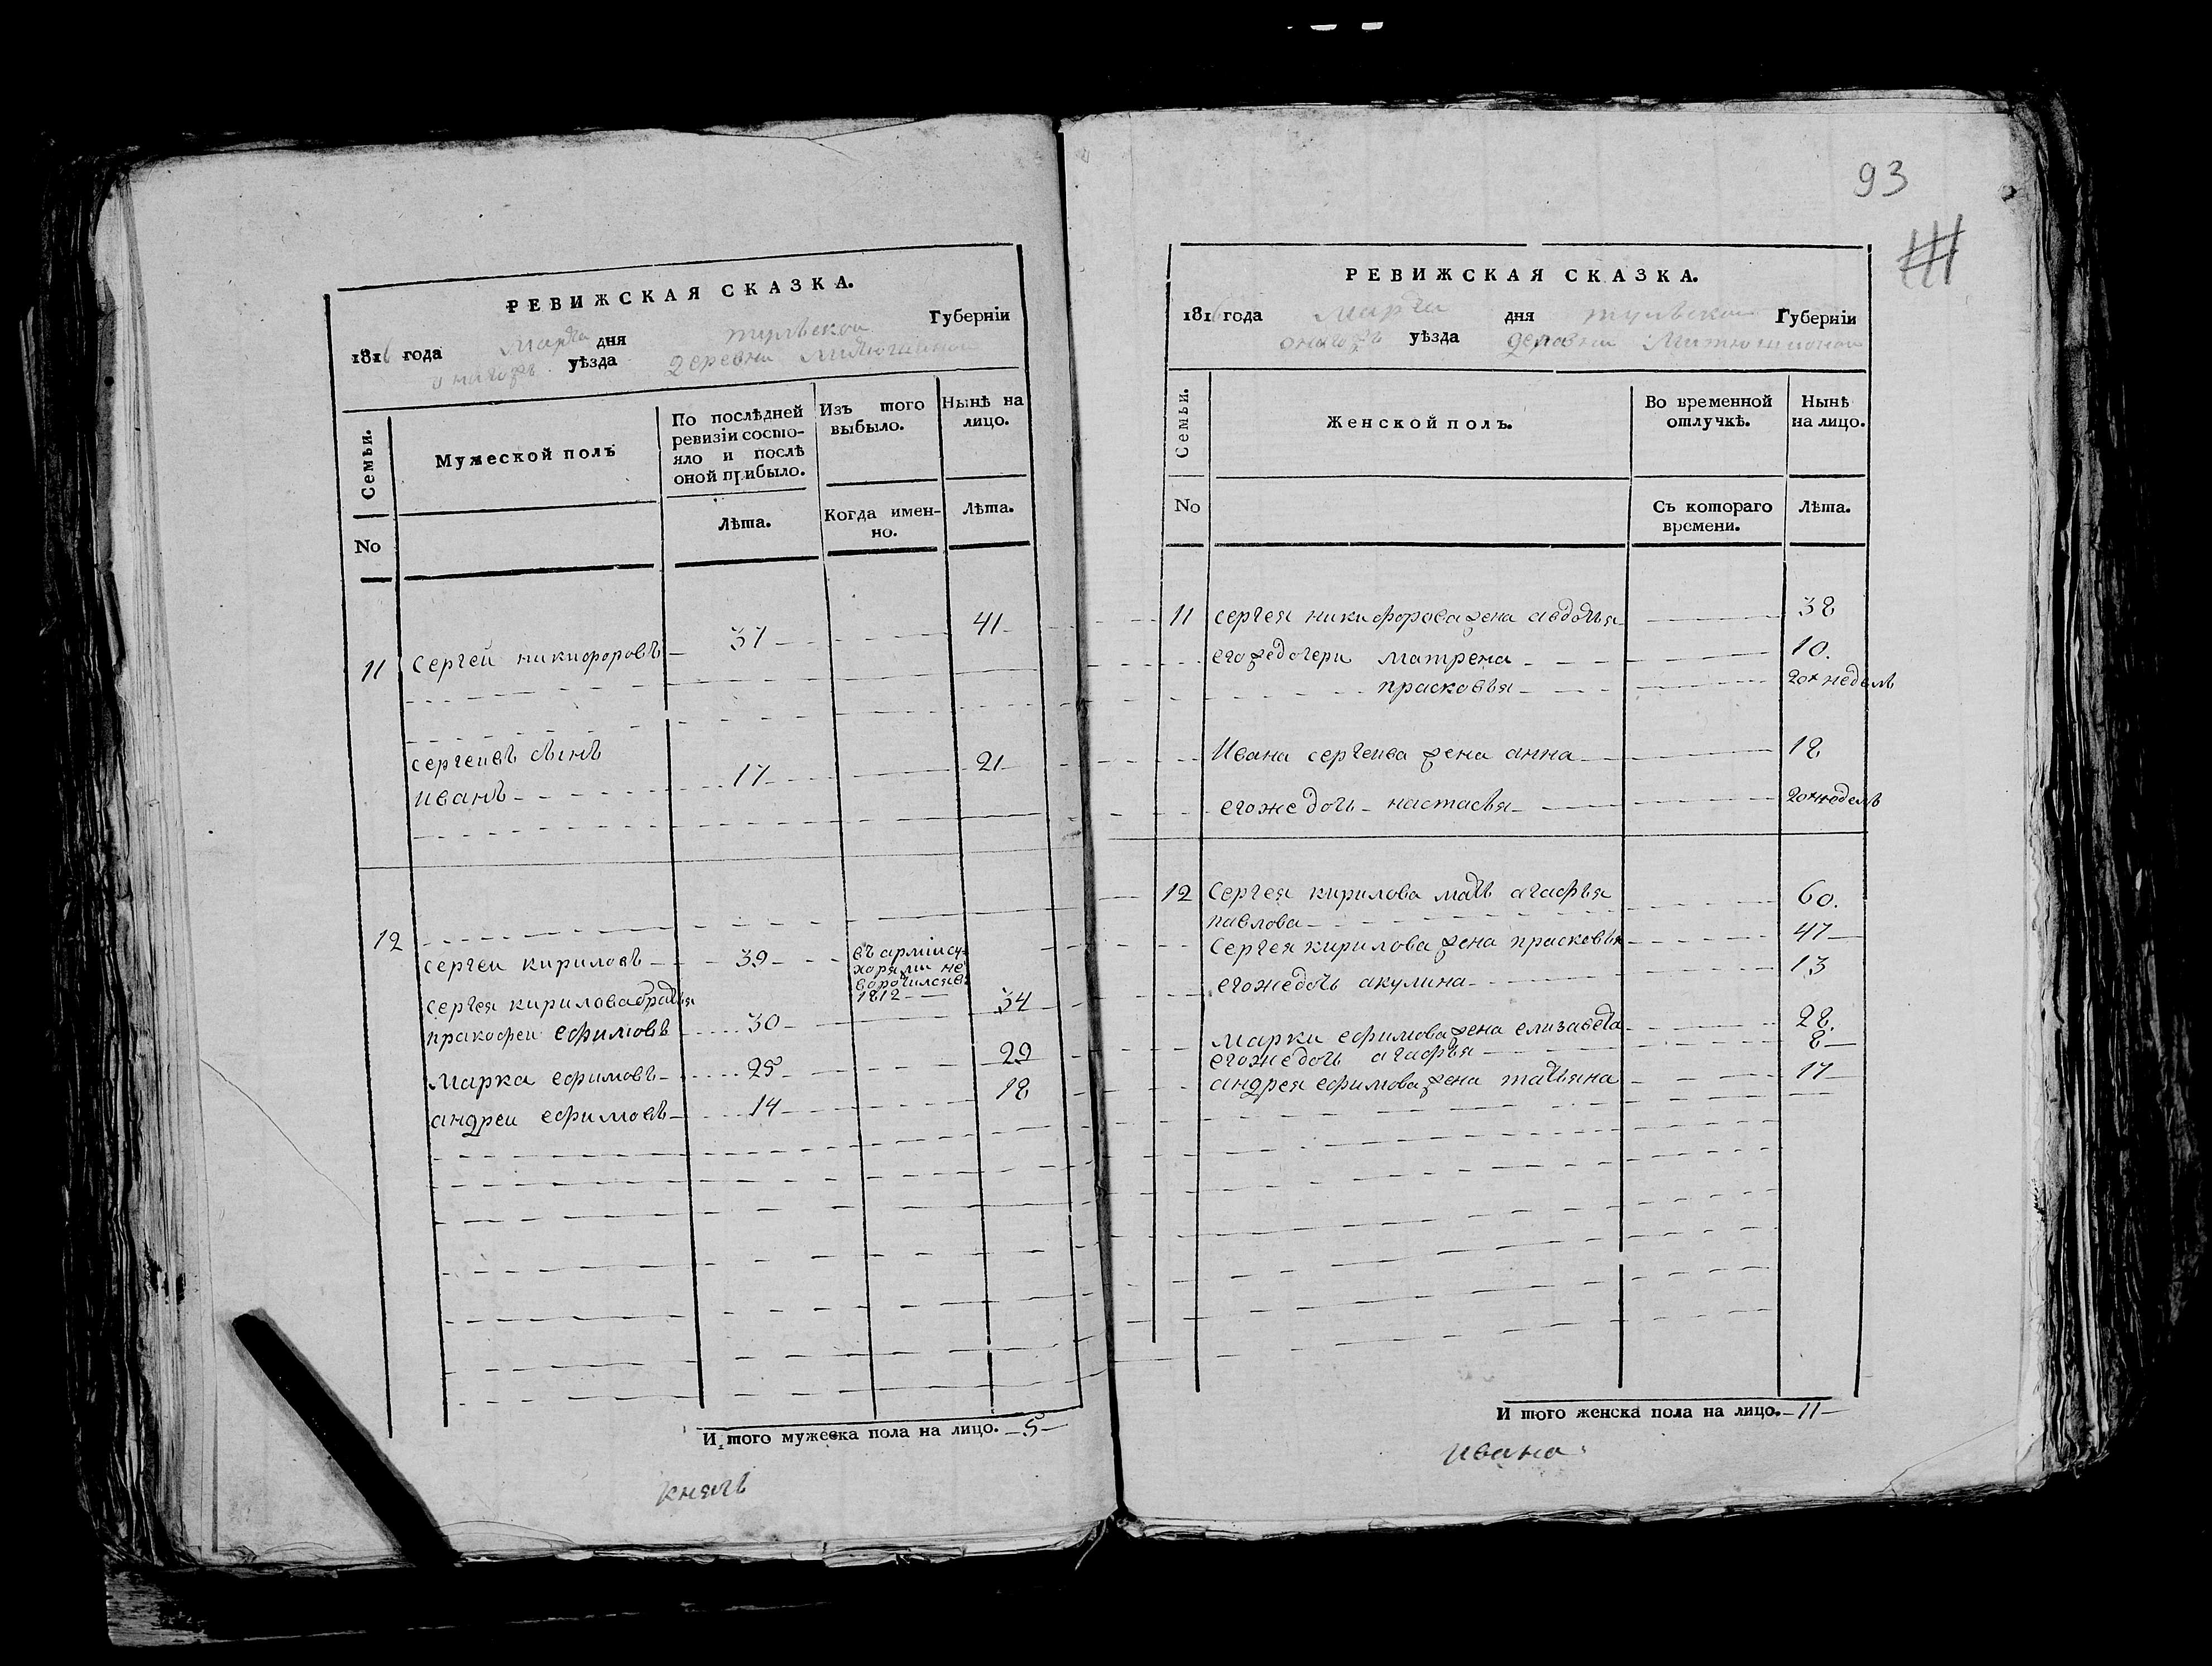 РЕВИЖСКАЯ СКАЗКА.
1816 года марта дня тулъской Губернїи
уѣзда деревни
Семьи.
Мужеской полъ
По послѣдней ревизїи состо-
яло и послѣ
оной прибыло.
Изъ того выбыло.
Нынѣ на лицо.
No
Лѣта.
Когда имен-
но.
Лѣта.
11 Сергей никифоровъ 37 41
сергеивъ сынъ
иванъ 17 21
12
сергеи кириловъ 39 въ арміи
не
1812
сергея кирилова братья
пракофеи ефимовъ 30 34
марка ефимовъ 25 29
андреи ефимовъ 14 18
И того мужеска пола на лицо. 5
князь
93
РЕВИЖСКАЯ СКАЗКА.
1816 года марта дня тулъской Губернїи
уѣзда деревни
Семьи.
Женской полъ.
Во временной
отлучкѣ.
Нынѣ
на лицо.
No
Съ котораго
времени.
Лѣта.
11 сергея никифорова жена авдотья 38
егожедочери матрена 10.
прасковья 20ть неделъ
Ивана сергеива жена анна 18
егоже дочь настасья 20ть неделъ
12 Сергея кирилова мать агафья 60.
павлова
Сергея кирилова жена прасковья 47
егожедочь акулина 13
марки ефимова жена елизавета 28.
егожедочь агафья 8
андрея ефимова жена татьяна 17
И того женска пола на лицо. 11
ивана